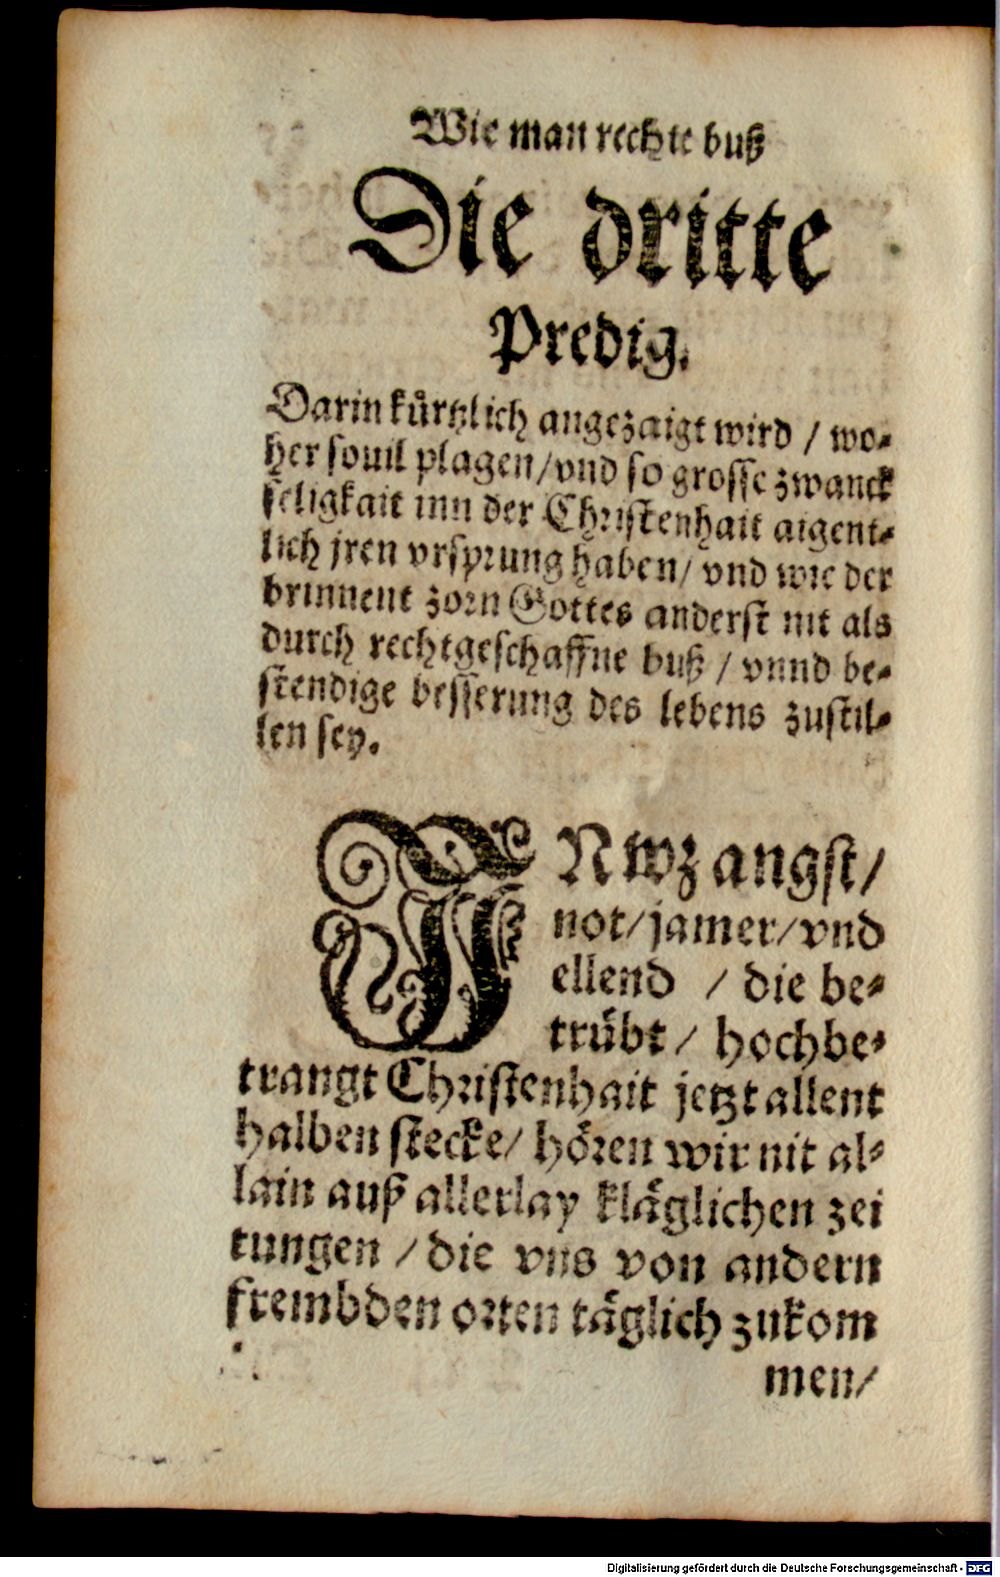 Wie man rechte buß
Die dritte
Predig.
Darin kůrtzlich angezaigt wird / wo-
her souil plagen/vnd so grosse zwanck
seligkait inn der Christenhait aigent-
lich jren vrsprung haben/ vnd wie der
brinnent zorn Gottes anderst nit als
durch rechtgeschaffne buß / vnnd be-
stendige besserung des lebens zustil-
len sey.
IN wz angst/
not/jamer/vnd
ellend / die be-
trübt / hochbe-
trangt Christenhait jetzt allent
halben stecke/ hören wir nit al-
lain auß allerlay kläglichen zei
tungen / die vns von andern
frembden orten täglich zukom
men/
Digitalisierung gefördert durch die Deutsche Forschungsgemeinschaft - DFG